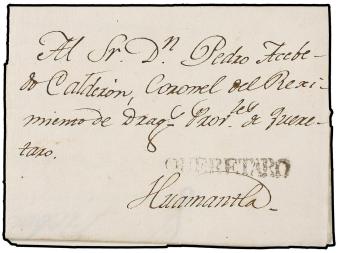 Al Sr. Dn. Pedro Acebe-
do Calderón, Coronel del Rexi-
miento de Drags. Provles. de Quere-
taro.
QUERETARO
Huamantla.